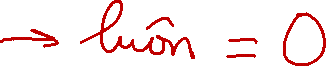 → luôn = 0